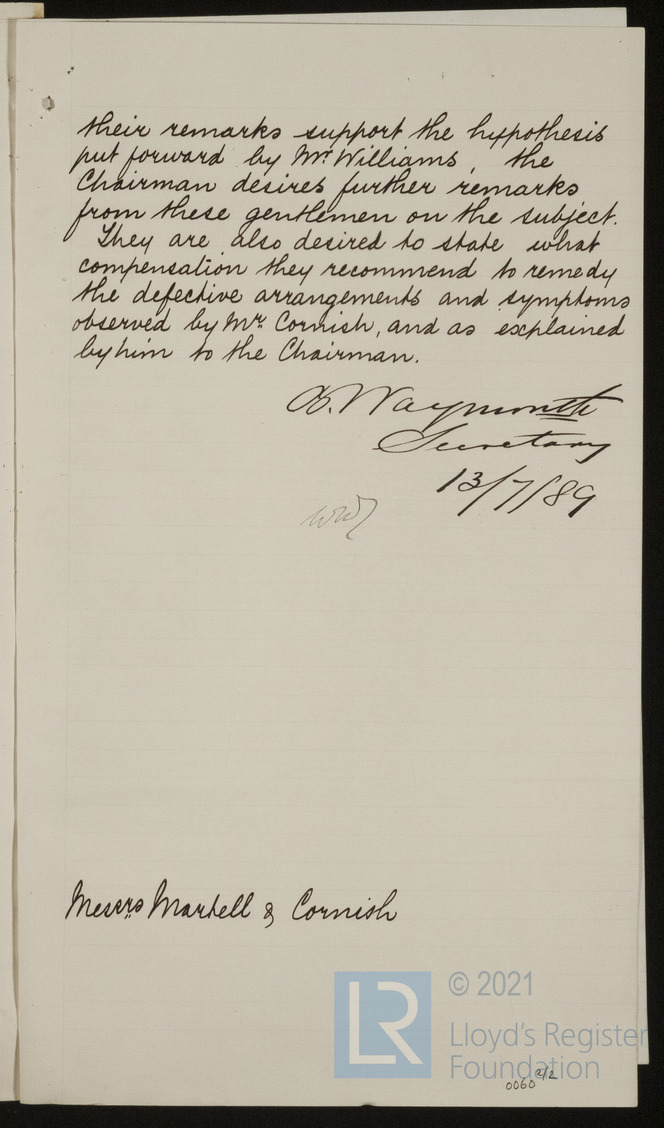 their remarks support the hypothesis
put forward by Mr. Williams, the
Chairman desires further remarks
from these gentlemen on the subject.
They are also desired to state what
compensation they recommend to remedy
the defective arrangements and symptoms
observed by Mr. Cornish, and as explained
by him to the Chairman.
B. Waymouth
Secretary
13/7/89
Messrs Martell & Cornish
LR
© 2021
Lloyd's Register
Foundation
0060 2/2